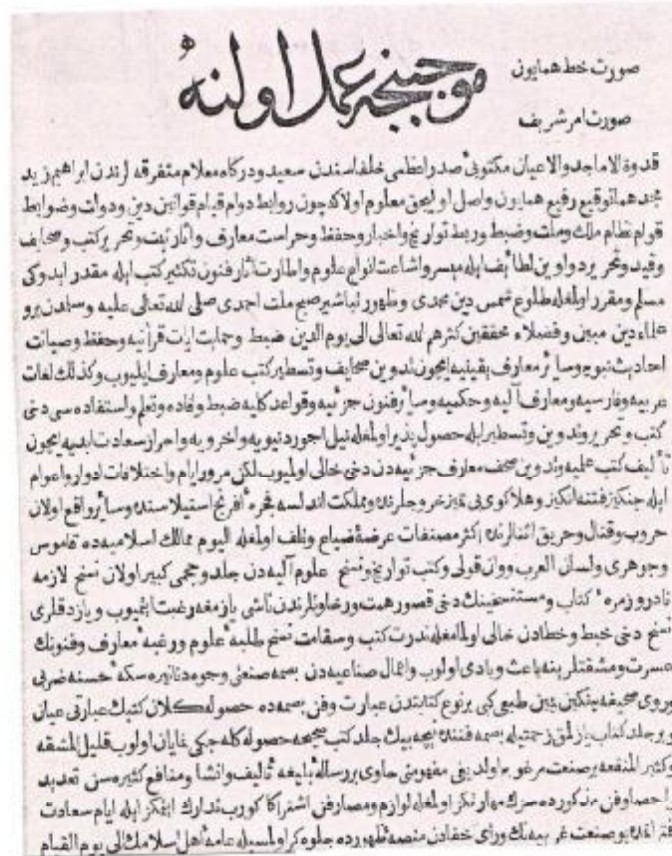 صورت خط همايون
موجبنجه عمل اولنه
صورت امر شريف
قدوة الاماجد والاعيان مكتوبئ صدر اعظمى خلفاسندن سعيد ودركاه معلام متفرقه لرندن ابراهيم زيد
مجدهما توقيع رفيع همايون واصل اوليجق معلوم اولا كه چون روابط دوام قيام قوانين دين ودولت وضوابط
قوام نظام ملك وملت وضبط وربط تواريخ واخبار وحفظ وحراست معارف واثار ثبت وتحرير كتب وصحايف
وقيد وتحرير دواوين لطائف ايله ميسر واشاعت انواع علوم آثار فنون تكثير كتب ايله مقدر ايدوكى
مسلم ومقرر اولمغله طلوع شمس دين محمدى وظهور تباشير صبح ملت احمدى صلى الله تعالى عليه وسلمدن برو
علماء دين مبين وفضلاء محققين كثرهم الله تعالى الى يوم الدين ضبط وحمايت ايات قرآنيه وحفظ وصيانت
احاديث نبويه وسائر معارف يقينيه ايچون تدوين صحايف وتسطير كتب علوم ومعارف ايليوب وكذلك لغات
عربيه وفارسيه ومعارف آليه وحكميه وسائر فنون جزئيه وقواعد كليه ضبط وافاده وتعلم واستفاده سى دخى
كتب وتحرير وتدوين وتسطير ايله حصول پذير اولمغله نيل اجور دنيويه واخرويه واحراز سعادت ابديه ايچون
تأليف كتب علميه وتدوين صحف معارف جزئيه دن دخى خالى اولميوب لكن مرور ايام واختلافات ادوار واعوام
ايله جنكيز فتنه انكيز وهلاكوى بى تميز خروجلرنده ومملكت اندلسه فجره افرنج استيلاسنده وسائر واقع اولان
حروب وقتال وحريق اثنالرنده اكثر مصنفات عرضۀ ضياع وتلف اولمغله اليوم ممالك اسلاميه ده قاموس
وجوهرى ولسان العرب ووان قولى وكتب تواريخ ونسخ علوم آليه دن جلد وحجمى كبير اولان نسخ لازمه
نادر وزمرۀ كتاب ومستنسخينك دخى قصور همت ورخاوتلرندن ناشى يازمغه رغبت ايتميوب ويازدقلرى
نسخ دخى خبط وخطادن خالى اولمامغله ندرت كتب وسقامت نسخ طلبۀ علوم ورغبۀ معارف وفنونك
عسرت ومشقتلرينه باعث وبادى اولوب واعمال صناعيه دن بصمه صنعتى وجوه دنانيره سكۀ حسنه ضربى
وروى صحيفه يه نكين نقشى طبعى كبى بر نوع كتابتدن عبارت وفن بصمه ده حصوله كلان كتبك عبارتى عيان
وبر جلد كتاب يازلمق زحمتيله بصمه فننده نيجه بيك جلد كتب صحيحه حصوله كله جكى نمايان اولوب قليل المشقه
وكثير المنفعه بر صنعت مرغوبه اولديغى مفهومنى حاوى بر رسالۀ بليغه تأليف وانشا ومنافع كثيره سن تعديد
احصا وفن مذكورده سزك مهارتكز اولمغله لوازم ومصارفن اشتراكا كوروب تدارك ايتمكز ايله ايام سعادت
بو صنعت غريبه نك وراى خفادن منصۀ ظهورده جلوه كر اولمسيله عامۀ اهل اسلامك الى يوم القيام